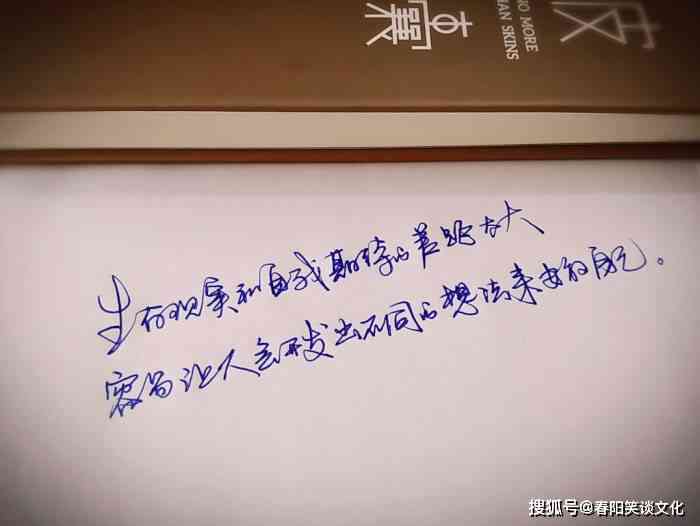 裹
皮
NO MORE
HUMAN SKINS
生存现实和自我期待的差距太大
容易让人会开发出不同的想法来安放自己。
搜狐号@春阳笑谈文化